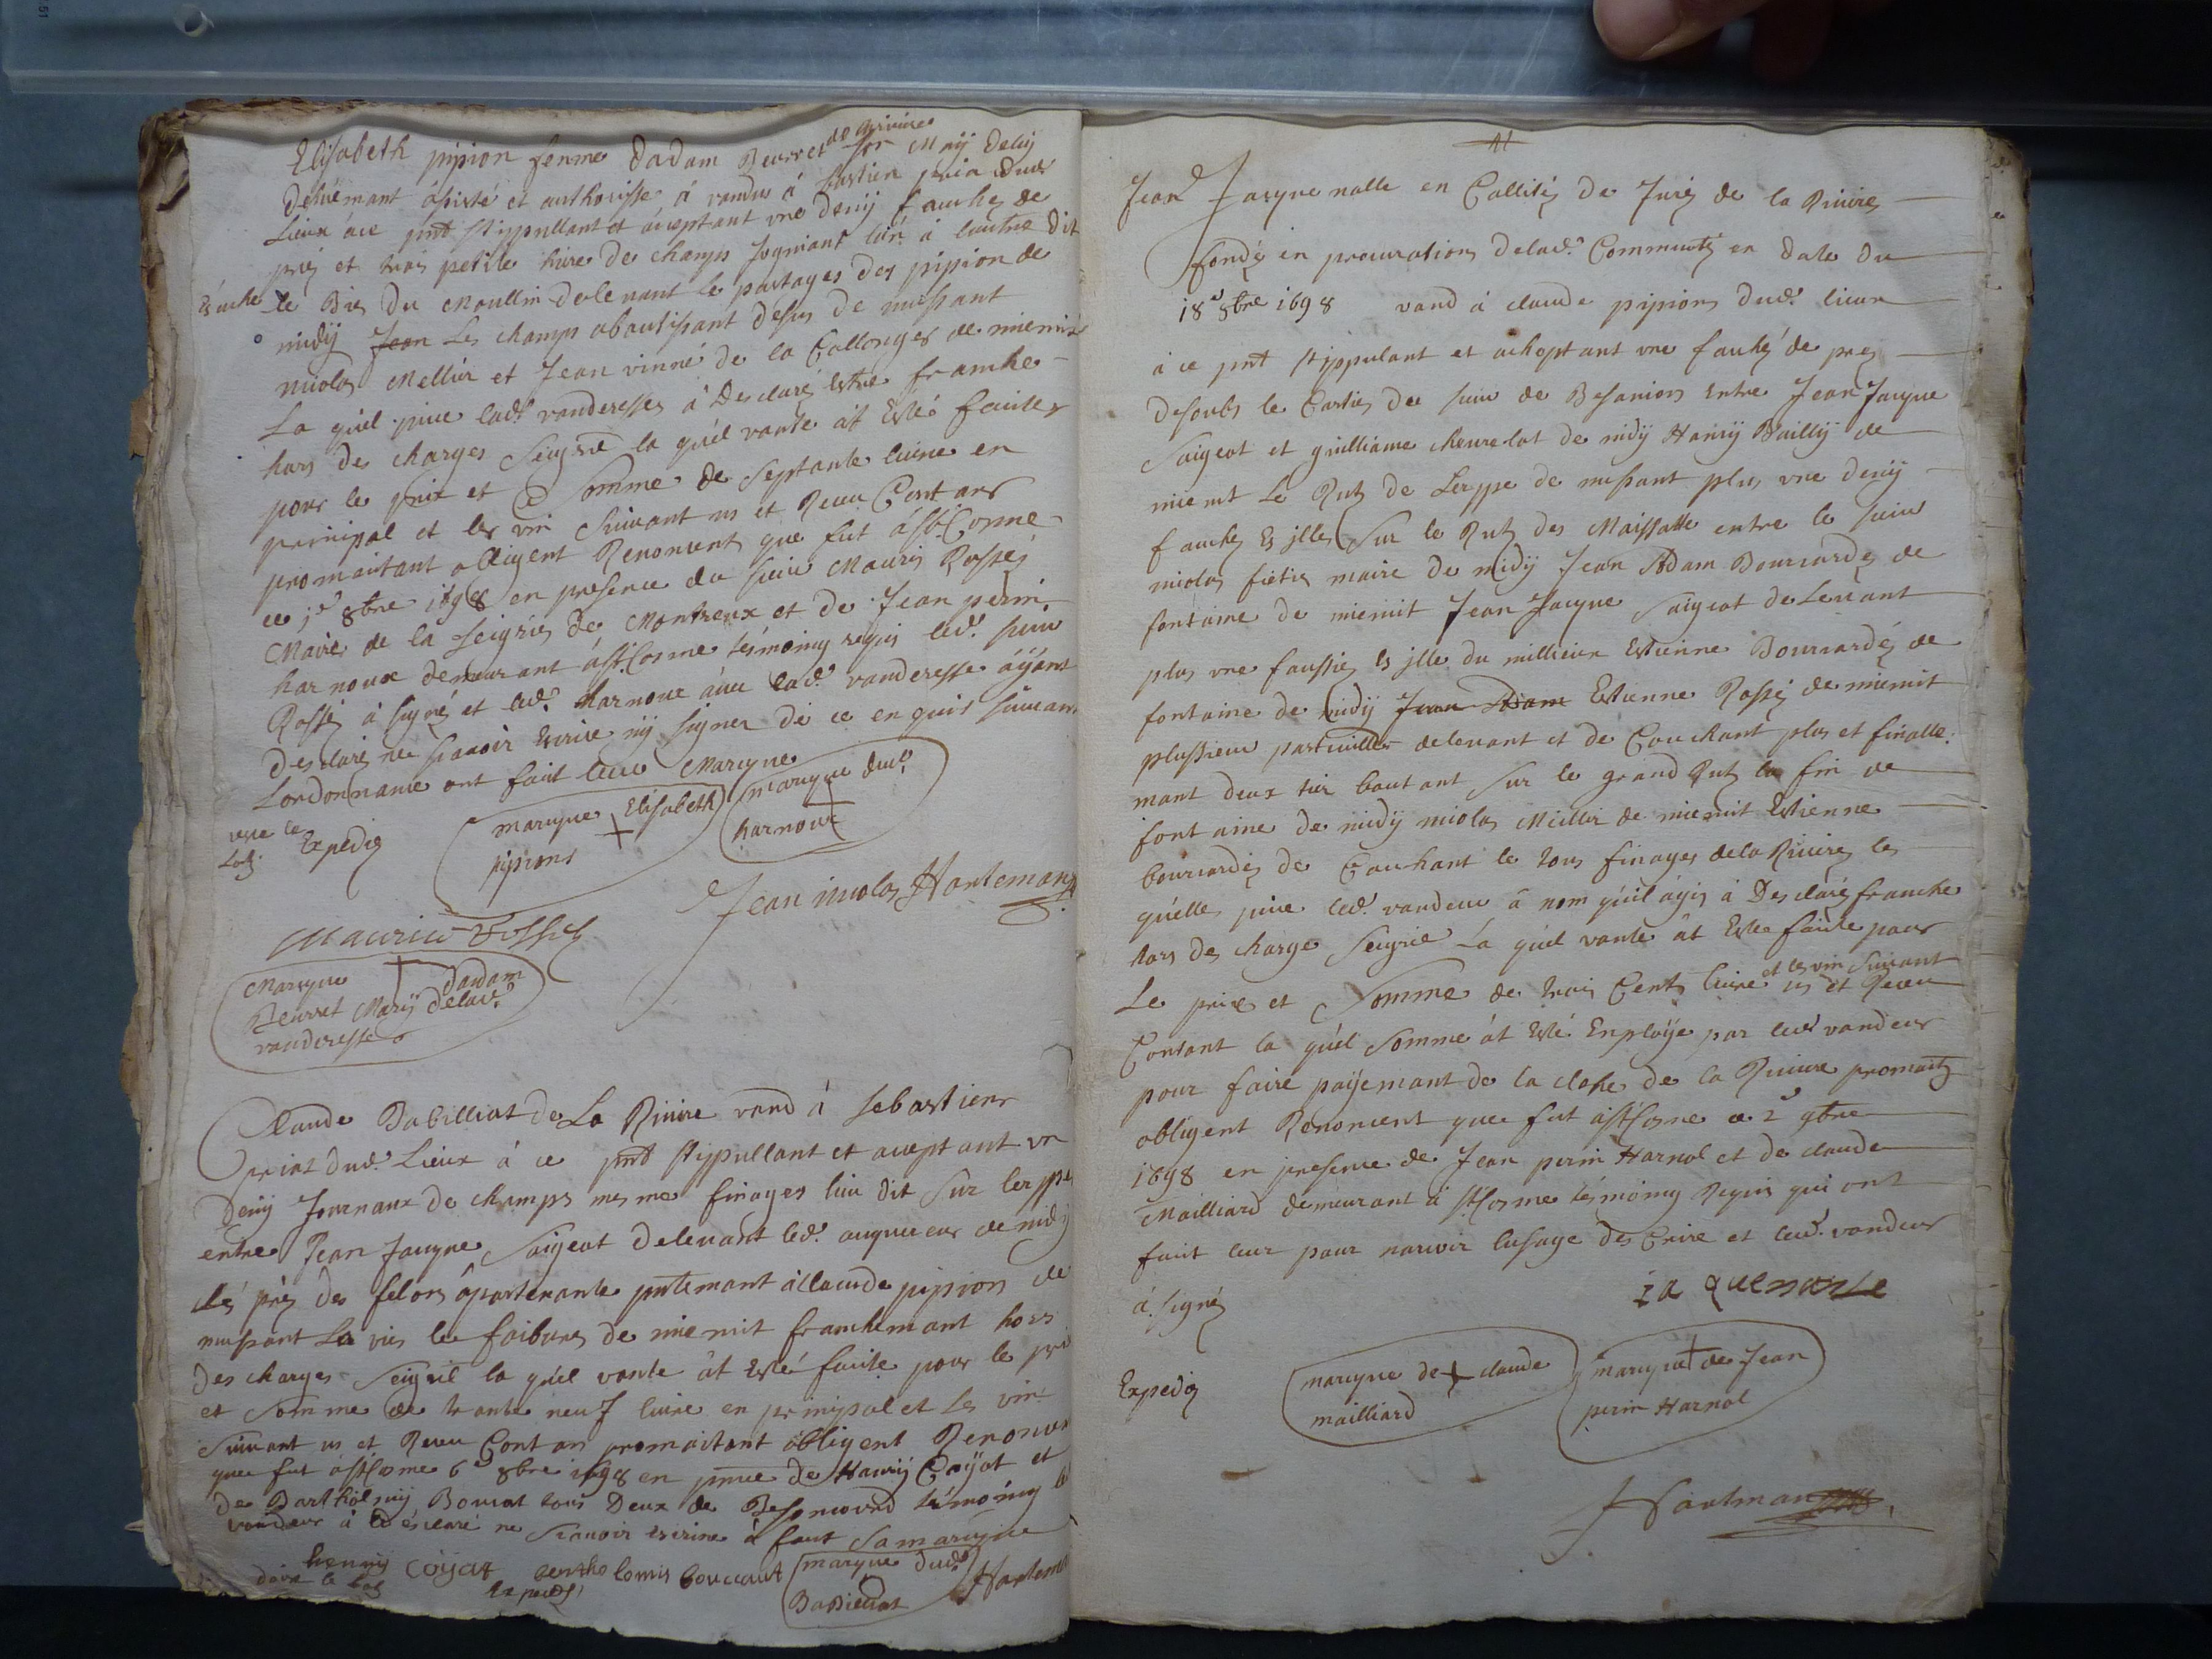 Elisabeth pipion femme Dadam Beurret de Riviere son Marÿ delÿ
Dehuëmant assisté et authorisse à vandu à bastien prin dud.
Lieux àce pnt stippullant et àceptant vne demÿ fauche de
prez et trois petite hure de champs Joigniant lun à lautre dit
le Bié du Moullin de levant le partages des pipion de
midÿ Jean Les champs aboutissant desus de nussant
nicolas Mellier et Jean vinné de la Collonges de mienuit
La quel piece lad. vanderesses à Desclaré Estre franche
hors des charges Seigrie la quél vante ât Esté faittes
pour le prix et Somme de Septante livre en
prinsipal et les vin Suivant us et Receu Contant
promaitant obligent Renoncent que fut à St. Cosme
ce j.e 8bre 1698 en presence du sieur Mauris Rossez
Maire de la Seigrie de Montreux et de Jean perin
harnoux demeurant à St Cosme tésmoing requis led. sieur
Rossez à signé et led. harnoux àvec lad. vanderesse àÿant
Desclaré ne scavoir Escrire nÿ signer de ce enquis suivant
Lordonnance ont fait leur Marcque
Expediez
marcque Elisabeth
pipions
marcque dud.
harnoux
Jean nicolas Hantemans
Maurice Rossez
Marcque dadam
Beurret Marÿ delad.
vanderesse
Claude Babilliat de La Rivire vand à Sebastiens
prins dud. Lieux à ce pnt stippullant et acceptant vn
Demÿ Journaux de champs mesme finages lieu dit Sur lerppe
entre Jean Jacque Saigeat delevant led. acqueur de midÿ
lés préz des felors âpartenante pntemant à Claude pipion de
nussant La vie le foibure de mienuit franchemant hors
des charges Seigril la quél vante ât Esté faite pour le prix
et Somme de trante neuf livre en prinsipal et Les vin
Suivant us et Receu Contan promaitant obligent Renoncent
que fut à St Cosme 6e 8bre 1698 en pnce de Haurÿ Coÿat et
de Bartholmÿ Boucat tous Deux de Besoncourd tésmoing
vandeur à desclaré ne Scavoir escrire à fait Sa marcque
henry coÿat bertholomis boucaut marcque dud. Hantemans
Expediez
Babilliat
41
Jean Jacque nalle en Callitéz de Juréz de la Riviere
fondéz en procurations delad. Communté en date du
18e 8bre 1698 vand à claude pipions dud. lieux
à ce pnt stippulant et achoptant vne fauchéz de prez
desoubs le Cartiez du sieur de Besanions Entre Jean Jacque
Saigeat et guilliame cheurelot de midÿ Haurÿ Baillÿ de
mienut Le Rutz de Lerppe de nussant plus vne demÿ
fauchez Es jlles Sur le Rutz des Maissatte entre le sieur
nicolas fietiez maire de midÿ Jean Adam Bourcardez de
fontaine de mienuit Jean Jacque Saigeat de Levant
plus vne faussiez Es jlle du millieux Estienne Bourcardéz de
fontaine de midÿ Jean Adam Estienne Rosséz de mienuit
plussieur particullier delevant et de Couchant plus et finalle-
mant deux tier boutant Sur le grand Rutz la fin de
fontaine de midÿ nicolas Meillier de mienuit Estienne
bourcardez de Couchant le tous finages de la Riviere les
quélle piece led. vandeur â nom quil âgis à Desclaré franche
hors de charge Seigrie La quel vante ât Estée faite pour
Le prix et Somme de trois Cents livre et les vin suivant us et Receu
Contant la quél Somme ât Esté Enploÿe par led. vandeur
pour faire paÿemant de la cloche de la Riviere promaitz
obligent Renoncent que fut à St Cosme ce 2e 9bre
1698 en presence de Jean perin Harnol et de claude
Mailliard demeurant à St Cosme tésmoing Requis qui ont
fait leur pour navoir lusage des Crire et led. vandeur
à signéz
ia que nalle
Expediez
marcque de claude
mailliard
marcque de Jean
perin Harnol
Hantmans